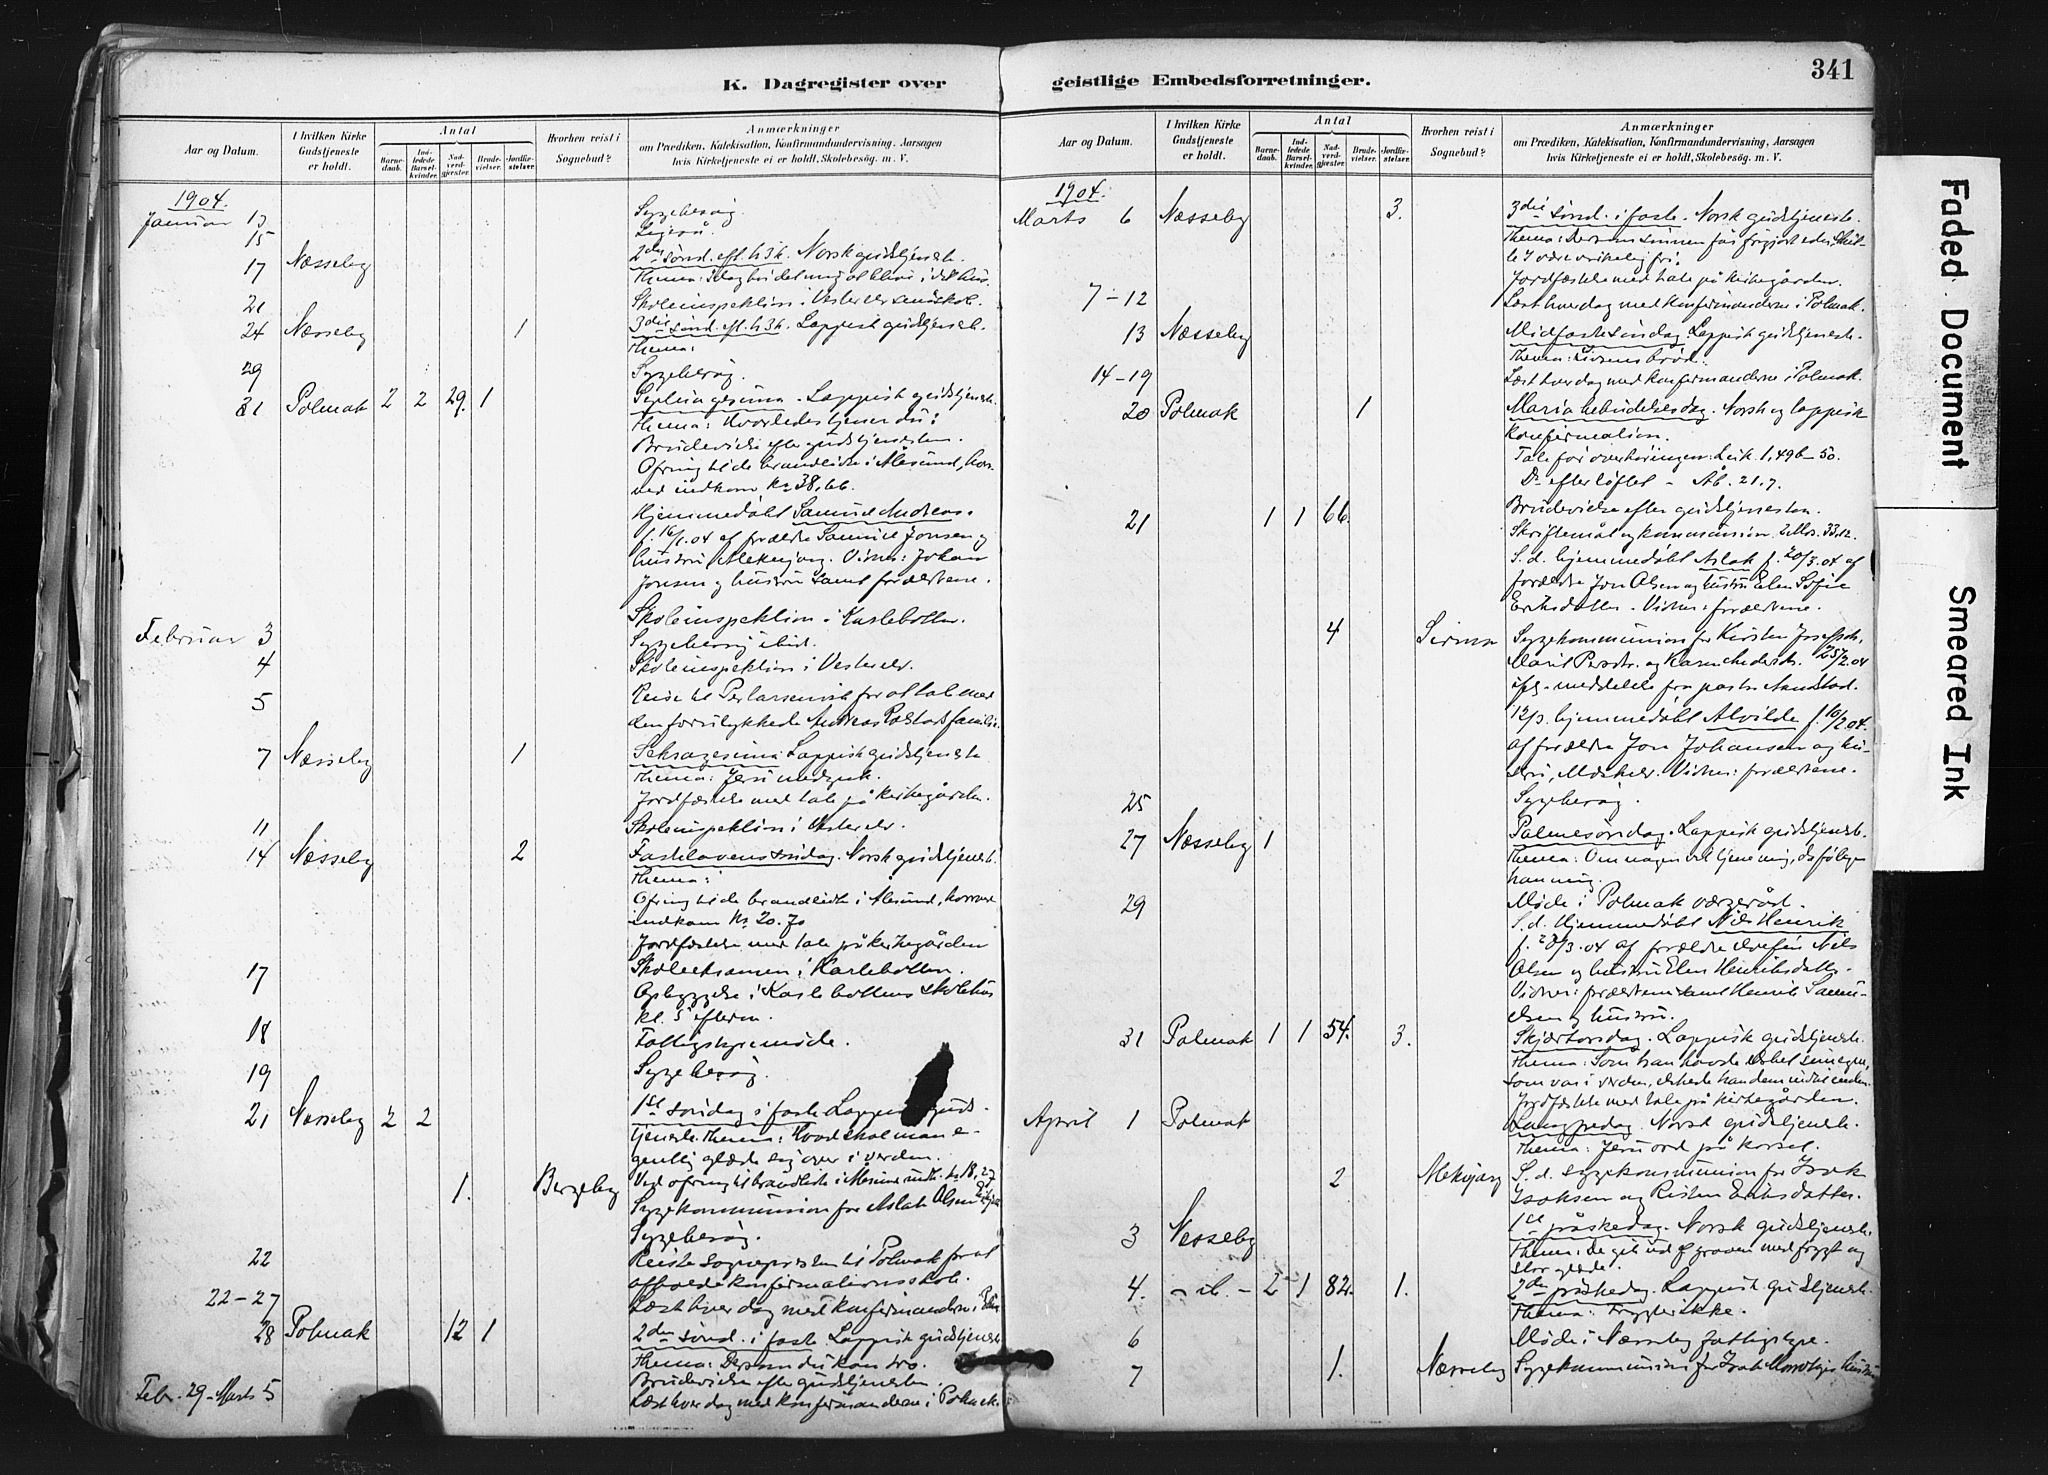 K. Dagregister over geistlige Embedsforretninger.
341
Aar og Datum.
I hvilken Kirke Gudstjeneste er holdt.
Antal
Barnedaab.
Indledede Barselkvinder.
Nadverdgjæster.
Brudevielser.
Jordfæstelser.
Hvorhen reist i Sognebud?
Anmærkninger
om Prædiken, Katekisation, Konfirmandundervisning, Aarsagen
hvis Kirketjeneste ei er holdt, Skolebesøg. m. V.
1904.
Januar 13 Sygebesøg.
15 Ligeså
17 Næsseby 2den sønd. eft. h3k. Norsk gudstjeneste.
Thema: Idag bør det mig at blive i dit hus.
21 Skoleinspektion i Vesterelv småskole.
24 Næsseby 1 3die sønd. eft. h3k. Lappisk gudstjeneste.
Thema:
29 Sygebesøg.
31 Polmak 2 2 29. 1 Septuagesima. Lappisk gudstjeneste.
Thema: Hvorledes tjener du?
Brudevielse efter gudstjenesten.
Ofring til de brandlidte i Ålesund, hvor-
ved indkom kr 38,66.
Hjemmedøbt Samuel Andreas.
f. 16/1.04 af forældre Samuel Jonsen og
hustru Mekenjarg. Vidner: Johan
Jonsen og hustru samt forældrene.
Februar 3 Skoleinspektion i Karlebotten.
Sygebesøg ibid.
4 Skoleinspektion i Vesterelv.
5 Reise til Perlarsenvik for at tale med
den forulykkede Andreas familie.
7 Næsseby 1 Seksagesima. Lappisk gudstjeneste
Thema:
Jordfæstelse med tale på kirkegården.
11 Skoleinspektion i Vesterelv.
14 Næsseby 2 Fastelavenssøndag. Norsk gudstjeneste.
Thema:
Ofring til de brandlidte i Ålesund, hvorved
indkom Kr. 20.70
Jordfæstelse med tale på kirkegården
17 Skoleeksamen i Karlebotten.
Opbyggelse i Karlebottens skolehus
kl. 5 efterm.
18 Fattigstyremøde.
19 Sygebesøg.
21 Næsseby 2 2 1ste søndag i faste Lappisk guds-
tjeneste. Thema: Hvad skal man e-
gentlig glæde sig over i verden.
Ved ofring til brandlidte i Ålesund indk. kr 18,27
1. Bergeby Sygekommunion for Aslak Olsen
Sygebesøg.
22 Reiste sognepresten til Polmak for at
afholde konfirmationsskole.
22-27 Læst hver dag med konfirmanderne i Polm.
28 Polmak 12 1 2den sønd. i faste Lappisk gudstjeneste
Thema: Dersom du kan tro.
Brudevielse efter gudstjenesten.
Febr. 29-Marts 5 Læst hver dag med konfirmanderne i Polmak.
Aar og Datum.
I hvilken Kirke Gudstjeneste er holdt.
Antal
Barnedaab.
Indledede Barselkvinder.
Nadverdgjæster.
Brudevielser.
Jordfæstelser.
Hvorhen reist i Sognebud?
Anmærkninger
om Prædiken, Katekisation, Konfirmandundervisning, Aarsagen
hvis Kirketjeneste ei er holdt, Skolebesøg. m. V.
1904.
Marts 6 Næsseby 3. 3die sønd. i faste. Norsk gudstjeneste.
Thema: Dersom sønnen får frigjort eder, skul-
le I være virkelig fri.
Jordfæstelse med tale på kirkegården.
7-12 Læst hver dag med konfirmanderne i Polmak.
13 Næsseby Midfastesøndag. Lappisk gudstjeneste.
Thema: Livsens brød.
14-19 Læst hver dag med konfirmanderne i Polmak.
20 Polmak 1 Mariæ bebudelsesdag. Norsk og lappisk
konfirmation.
Tale før overhøringen: Luk. 1, 49b-50.
Do efter løftet - Åb. 21.7.
Brudevielse efter gudstjenesten.
21 1 1 66. Skriftemål og kommunion. 2 Mos. 33.12.
S. d. hjemmedøbt Aslak f. 20/3.04 af
forældre Jon Olsen og hustru Elen Sofie
Eriksdatter. Vidner: forældrene.
4 Sirma Sygekommunion for Kirsten Josefsdr.,
Marit Persdr. og Karen Andersdr. 25/2.04
ifg. meddelelse fra pastor Aandstad.
12/3. hjemmedøbt Alvilde f. 16/2.04.
af forældre Jon Johansen og hu-
stru, Måskelv. Vidner: forældrene.
25 Sygebesøg.
27 Næsseby 1 Palmesøndag. Lappisk gudstjeneste.
Thema: Om nogen vil tjene mig, da følge
han mig.
29 Møde i Polmak værgeråd.
S. d. hjemmedøbt Nils Henrik
f. 20/3.04 af forældre Nils
Olsen og hustru Elen Henriksdatter.
Vidner: forældrene samt Henrik Samu-
elsen og hustru.
31 Polmak 1 1 54. 3. Skjærtorsdag. Lappisk gudstjeneste.
Thema: Som han havde elsket sine egne,
som var i verden, elskede han dem indtil enden.
Jordfæstelse med tale på kirkegården.
April 1 Polmak Langfredag. Norsk gudstjeneste.
Thema: Jesu ord på korset.
2 Mekojarg S. d. sygekommunion for Isak
Isaksen og Risten Eriksdatter.
3 Nesseby 1ste påskedag. Norsk gudstjeneste.
Thema: De gik ud af graven med frygt og
stor glæde.
4. - ib. - 2 1 82. 1. 2den påskedag. Lappisk gudstjeneste.
Thema: Frygter ikke.
6 Møde i Næsseby fattigstyre.
7 1. Næsseby Sygekommunion for Isak hustru
Faded Document
Smeared Ink